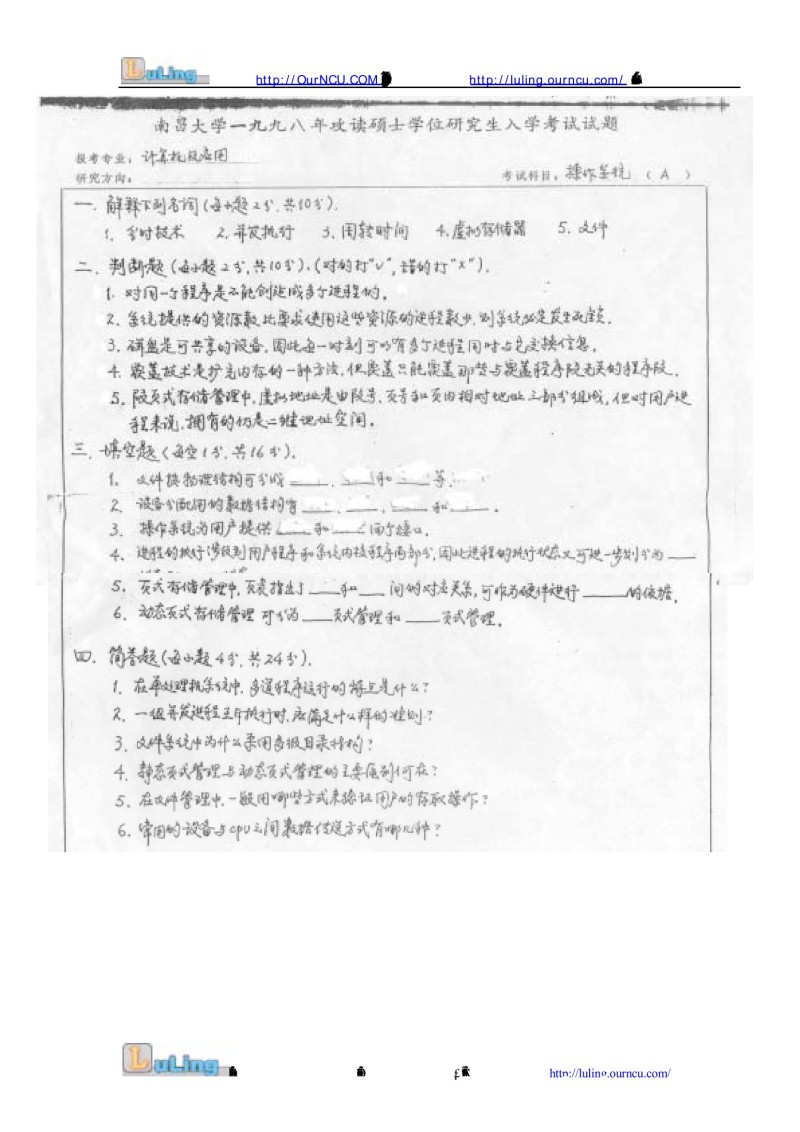 LuLing http://OurNCU.COM http://luling.ourncu.com/
南昌大学一九九八年攻读硕士学位研究生入学考试试题
报考专业：计算机及应用
研究方向： 考试科目：操作系统（A）
一．解释下列名词（每小题2分，共10分）．
1．分时技术 2．并发执行 3．周转时间 4．虚拟存储器 5．文件
二．判断题（每小题2分，共10分）．（对的打"√"，错的打"×"）．
1．对同一个程序是不能创建成多个进程的．
2．系统提供的资源数比要求使用这些资源的进程数少，则系统必定发生死锁．
3．磁盘是可共享的设备，因此每一时刻可以有多个进程同时与它交换信息．
4．覆盖技术是扩充内存的一种方法，但覆盖只能覆盖那些与覆盖程序段无关的程序段．
5．段页式存储管理中，虚拟地址是由段号、页号和页内相对地址三部分组成，但对用户进
程来说，拥有的仍是二维地址空间．
三．填空题（每空1分，共16分）．
1．文件按物理结构可分成 、 和 等．
2．设备分配用的数据结构有 、 、 和 ．
3．操作系统为用户提供 和 两个接口．
4．进程的执行涉及到用户程序和系统内核程序两部分，因此进程的执行状态又可进一步划分为
5．页式存储管理中，页表指出了 和 间的对应关系，可作为硬件进行 的依据．
6．动态页式存储管理可分为 页式管理和 页式管理．
四．简答题（每小题4分，共24分）．
1．在单处理机系统中，多道程序运行的特点是什么？
2．一组并发进程互斥执行时，应满足什么样的准则？
3．文件系统中为什么采用多级目录结构？
4．静态页式管理与动态页式管理的主要区别何在？
5．在文件管理中，一般用哪些方式来验证用户的存取操作？
6．常用的设备与cpu之间数据传送方式有哪几种？
LuLing http://luling.ourncu.com/